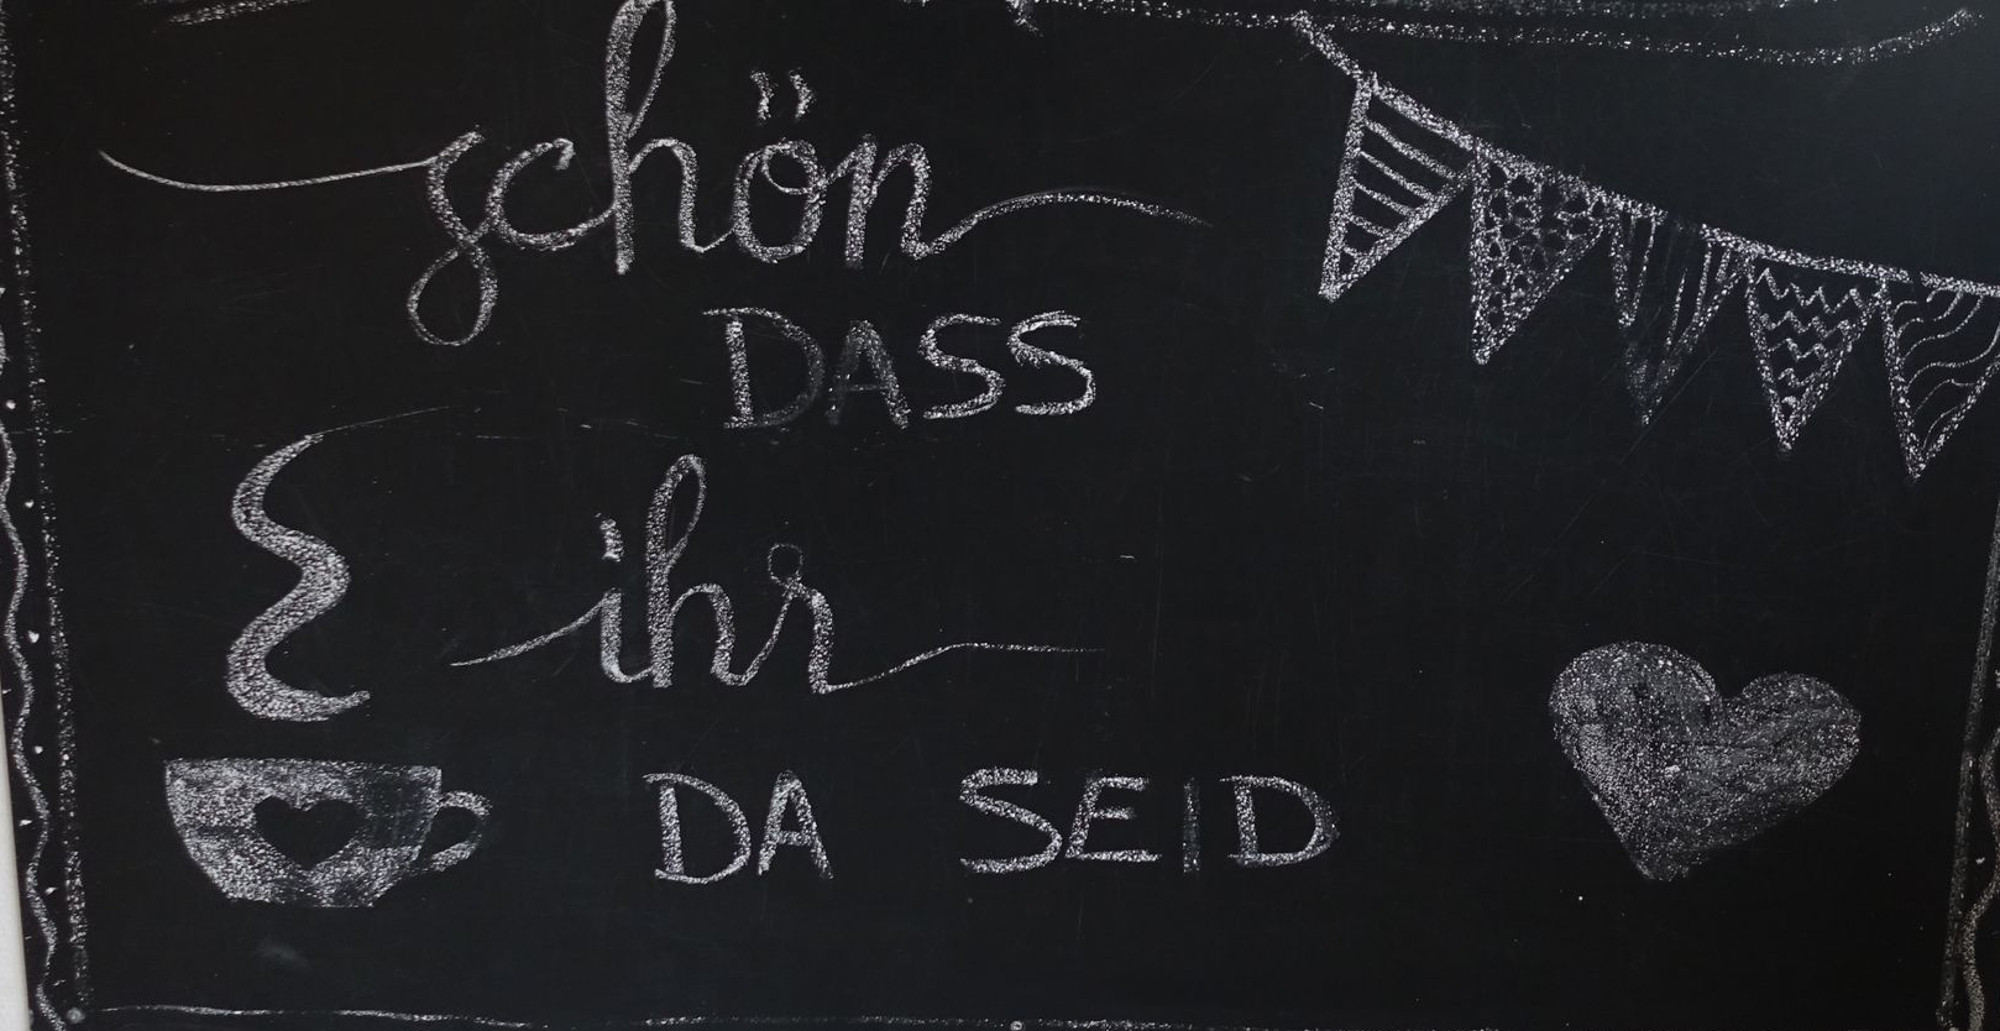 schön
DASS
ihr
DA SEID